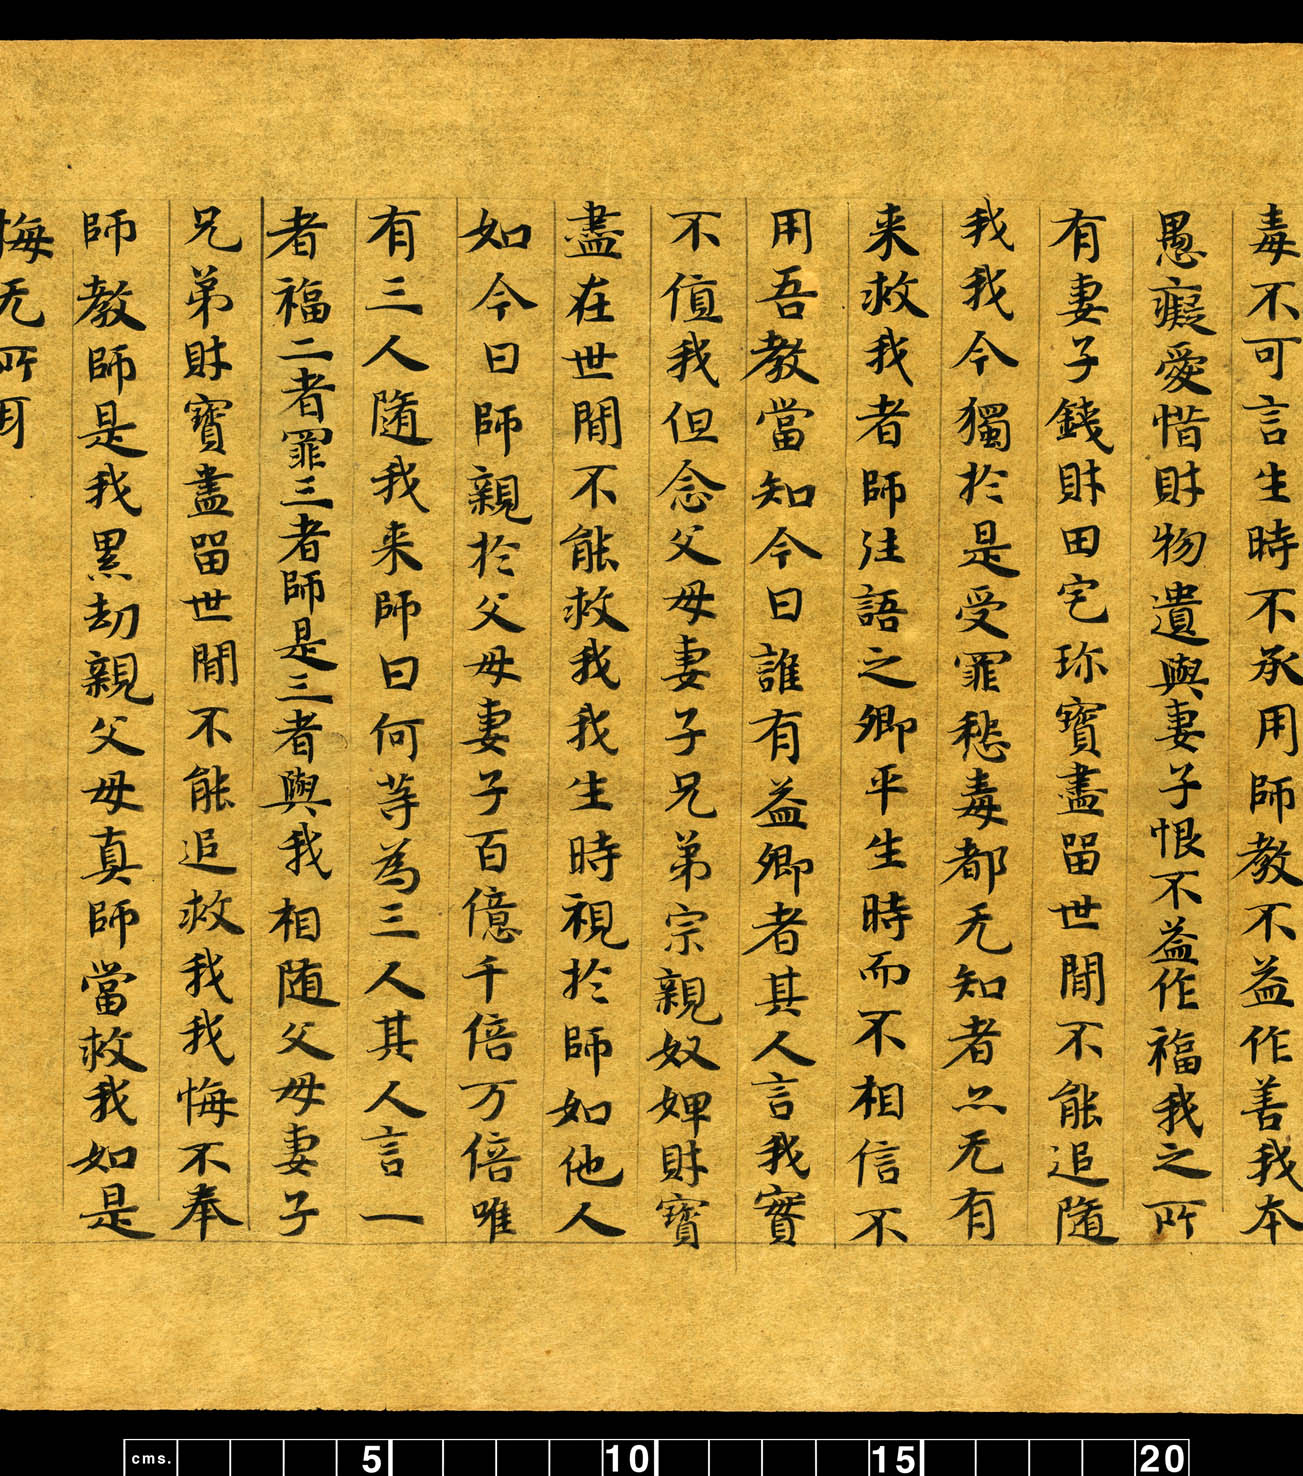 毒不可言生時不承用師教不益作善我本
愚癡愛惜財物遺與妻子恨不益作福我之所
有妻子錢財田宅珎寶盡留世間不能追隨
我我今獨於是受罪愁毒都无知者亦无有
来救我者師注語之卿平生時而不相信不
用吾教當知今日誰有益卿者其人言我實
不值我但念父母妻子兄弟宗親奴婢財寶
盡在世間不能救我我生時視於師如他人
如今日師親於父母妻子百億千倍万倍唯
有三人隨我来師曰何等為三人其人言一
者福二者罪三者師是三者與我相随父母妻子
兄弟財寶盡留世間不能追救我我悔不奉
師教師是我累劫親父母真師當救我如是
悔无所